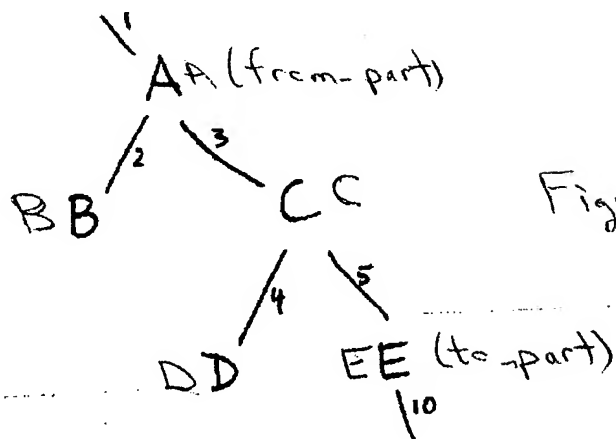 1
A A (from-part)
2 3
B B C C
Fig
4 5
D D E E (to-part)
10